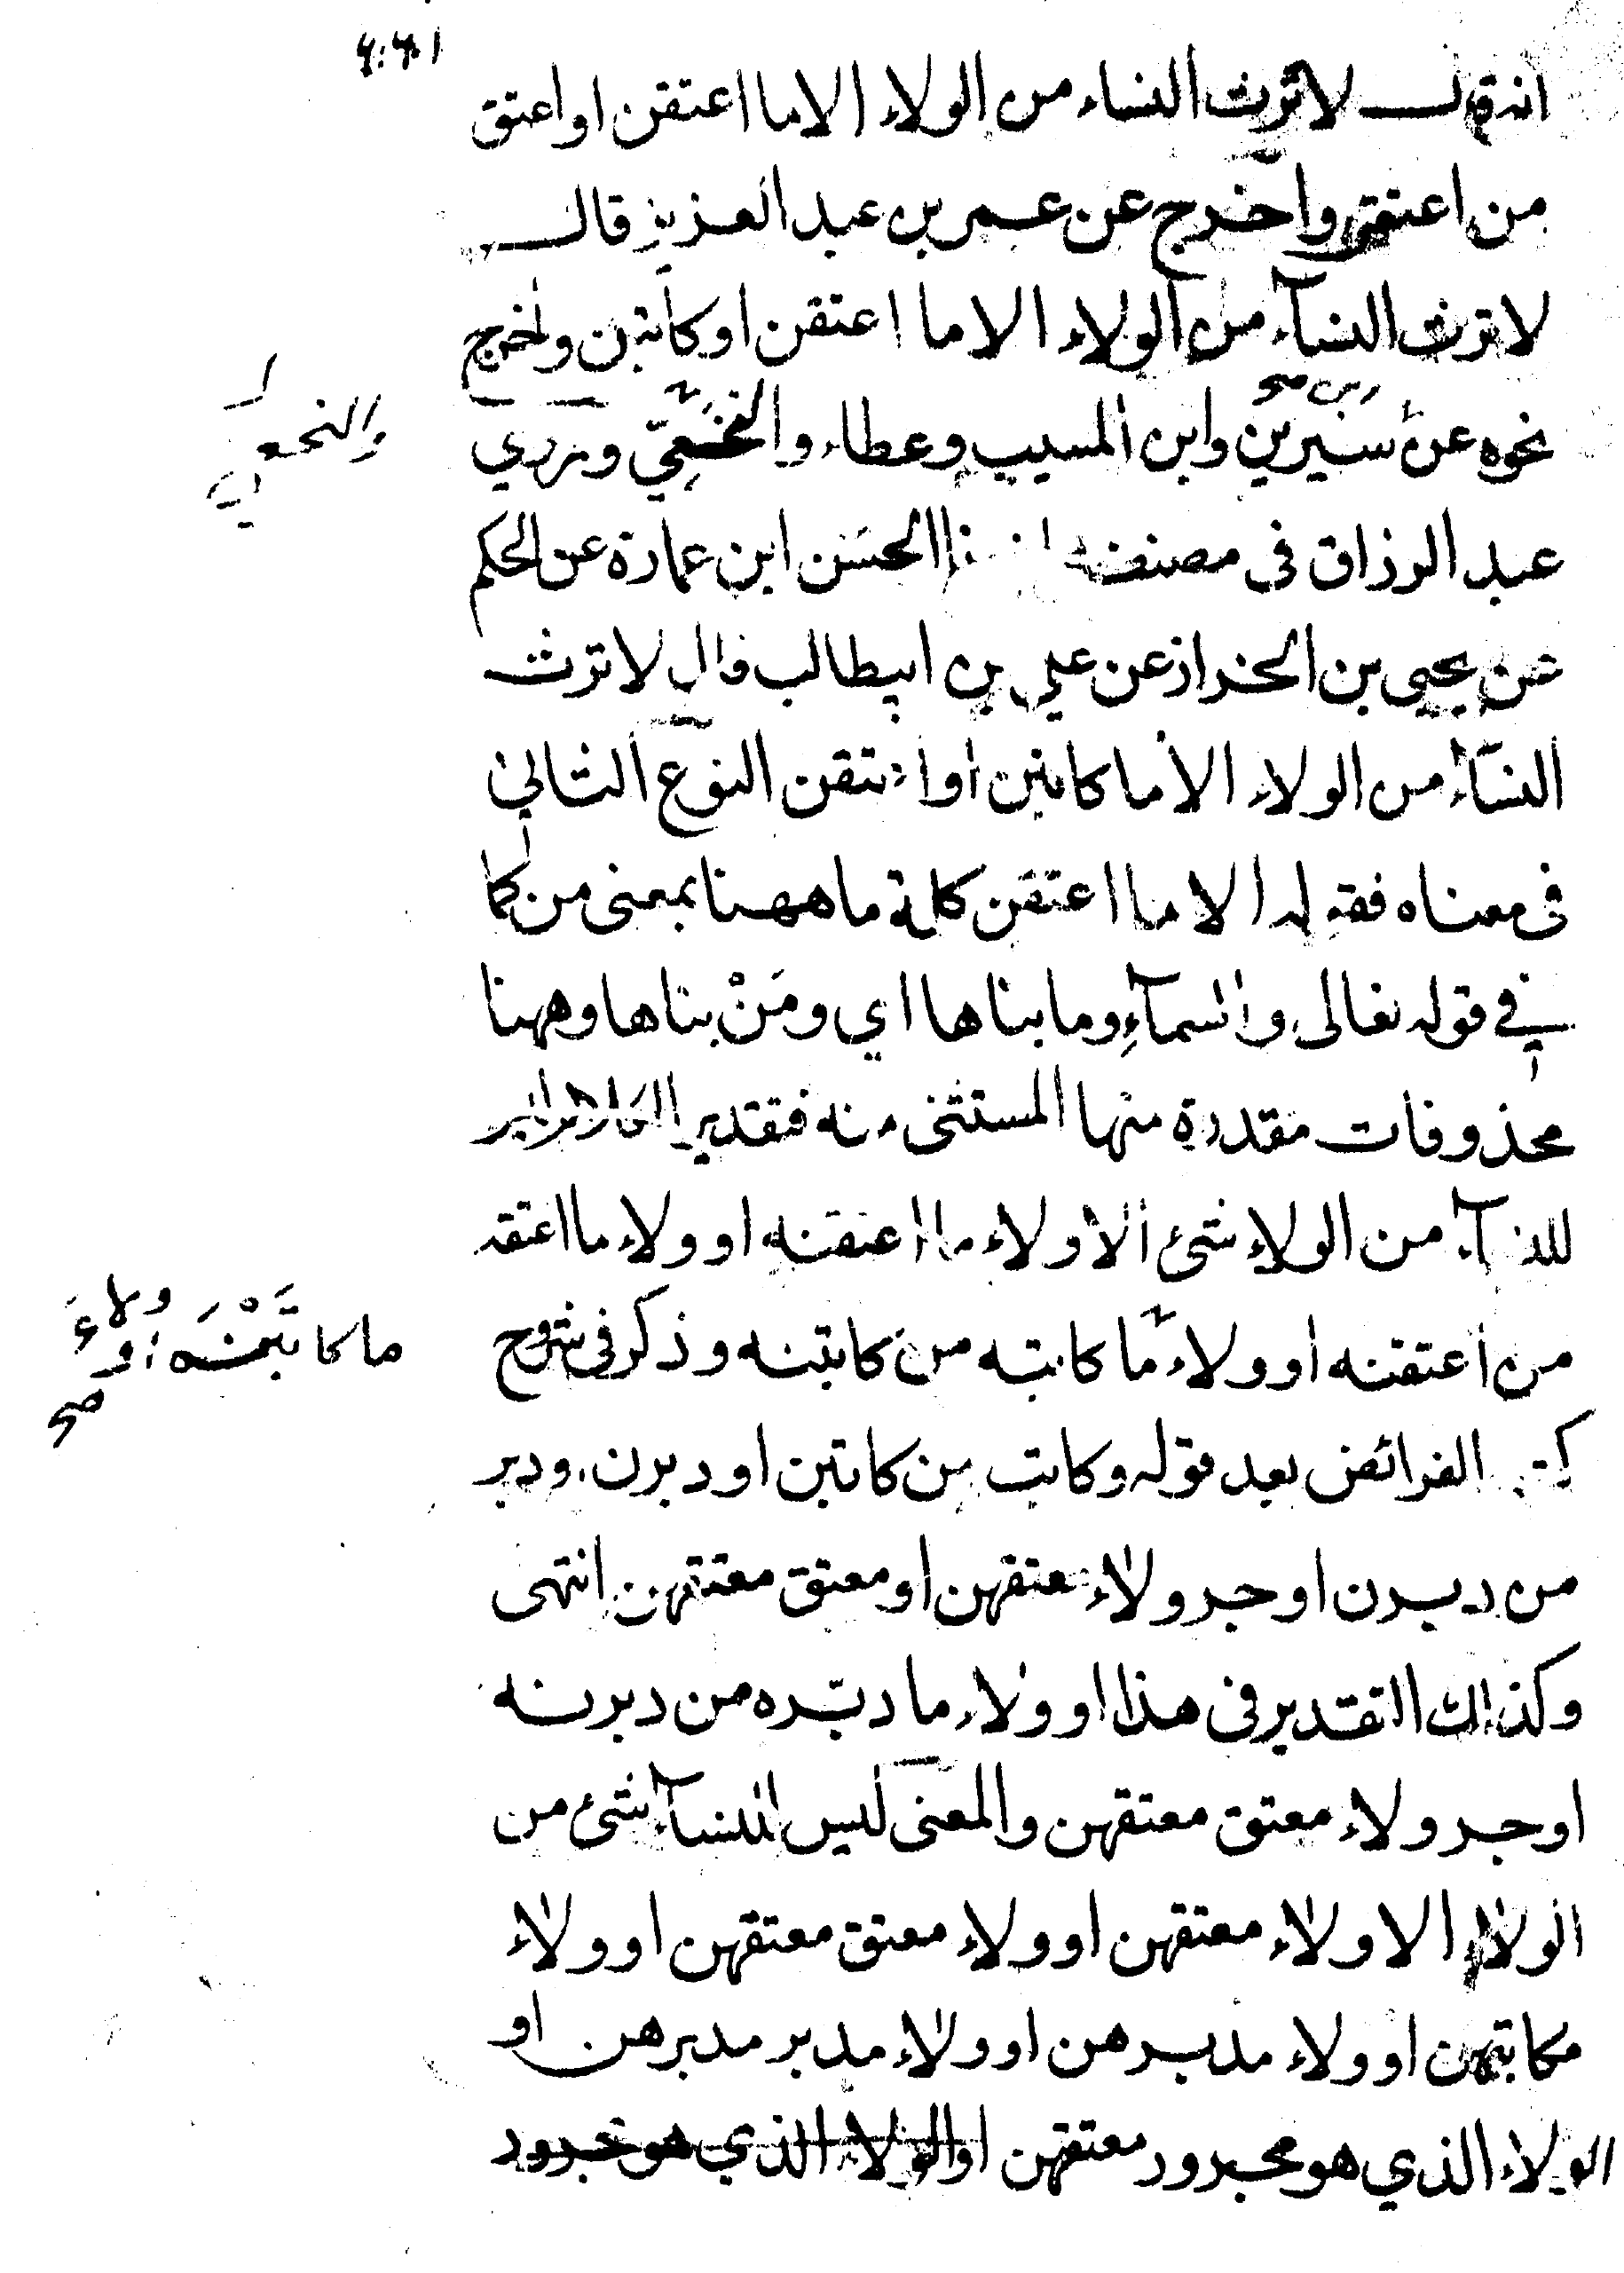 انه قال لا ترث النساء من الولاء الا ما اعتقن او اعتق
من اعتقن واخرج عن عمر بن عبد العزيز قال
لا ترث النسآء من الولاء الا ما اعتقن او كاتبن واخرج
نحوه عن سيرين وابن المسيب وعطاء والنخعيّ وروي
بن صح
والنخعي
عبد الرزاق فى مصنفه الحسَن ابن عمارة عن الحكم
عن يحيى بن الخراز عن علي بن ابيطالب قال لا ترث
النسآء من الولاء الا ما كاتبن او اعتقن النوع الثاني
فى معناه فقوله الا ما اعتقن كلمة ما ههنا بمعنى من كما
في قوله تعالى والسمآءِ وما بناها اي ومَنْ بناها وههنا
محذوفات مقدرة منها المستثنى منه فتقدير الكلام ليس
للنسآء من الولاء شئ الا ولاء ما اعتقنه او ولاء ما اعتقه
من اعتقنه او ولاء ما كاتبه من كاتبنه وذكر فى شروح
ولاءَ ما كاتَبْنَه او صح
كتب الفرائض بعد قوله وكاتب من كاتبن او دبرن ودبر
من دبرن او جر ولاء معتقهن او معتق معتقهن انتهى
وكذلك التقدير فى هذا او ولاء ما دبّره من دبرنه
او جر ولاء معتق معتقهن والمعنى ليس للنسآء شئ من
الولاء الا ولاء معتقهن او ولاء معتق معتقهن او ولاء
مكاتبهن او ولاء مدبرهن او ولاء مدبر مدبرهن او
الولاء الذي هو مجرور معتقهن او الولاء الذي هو مجرور